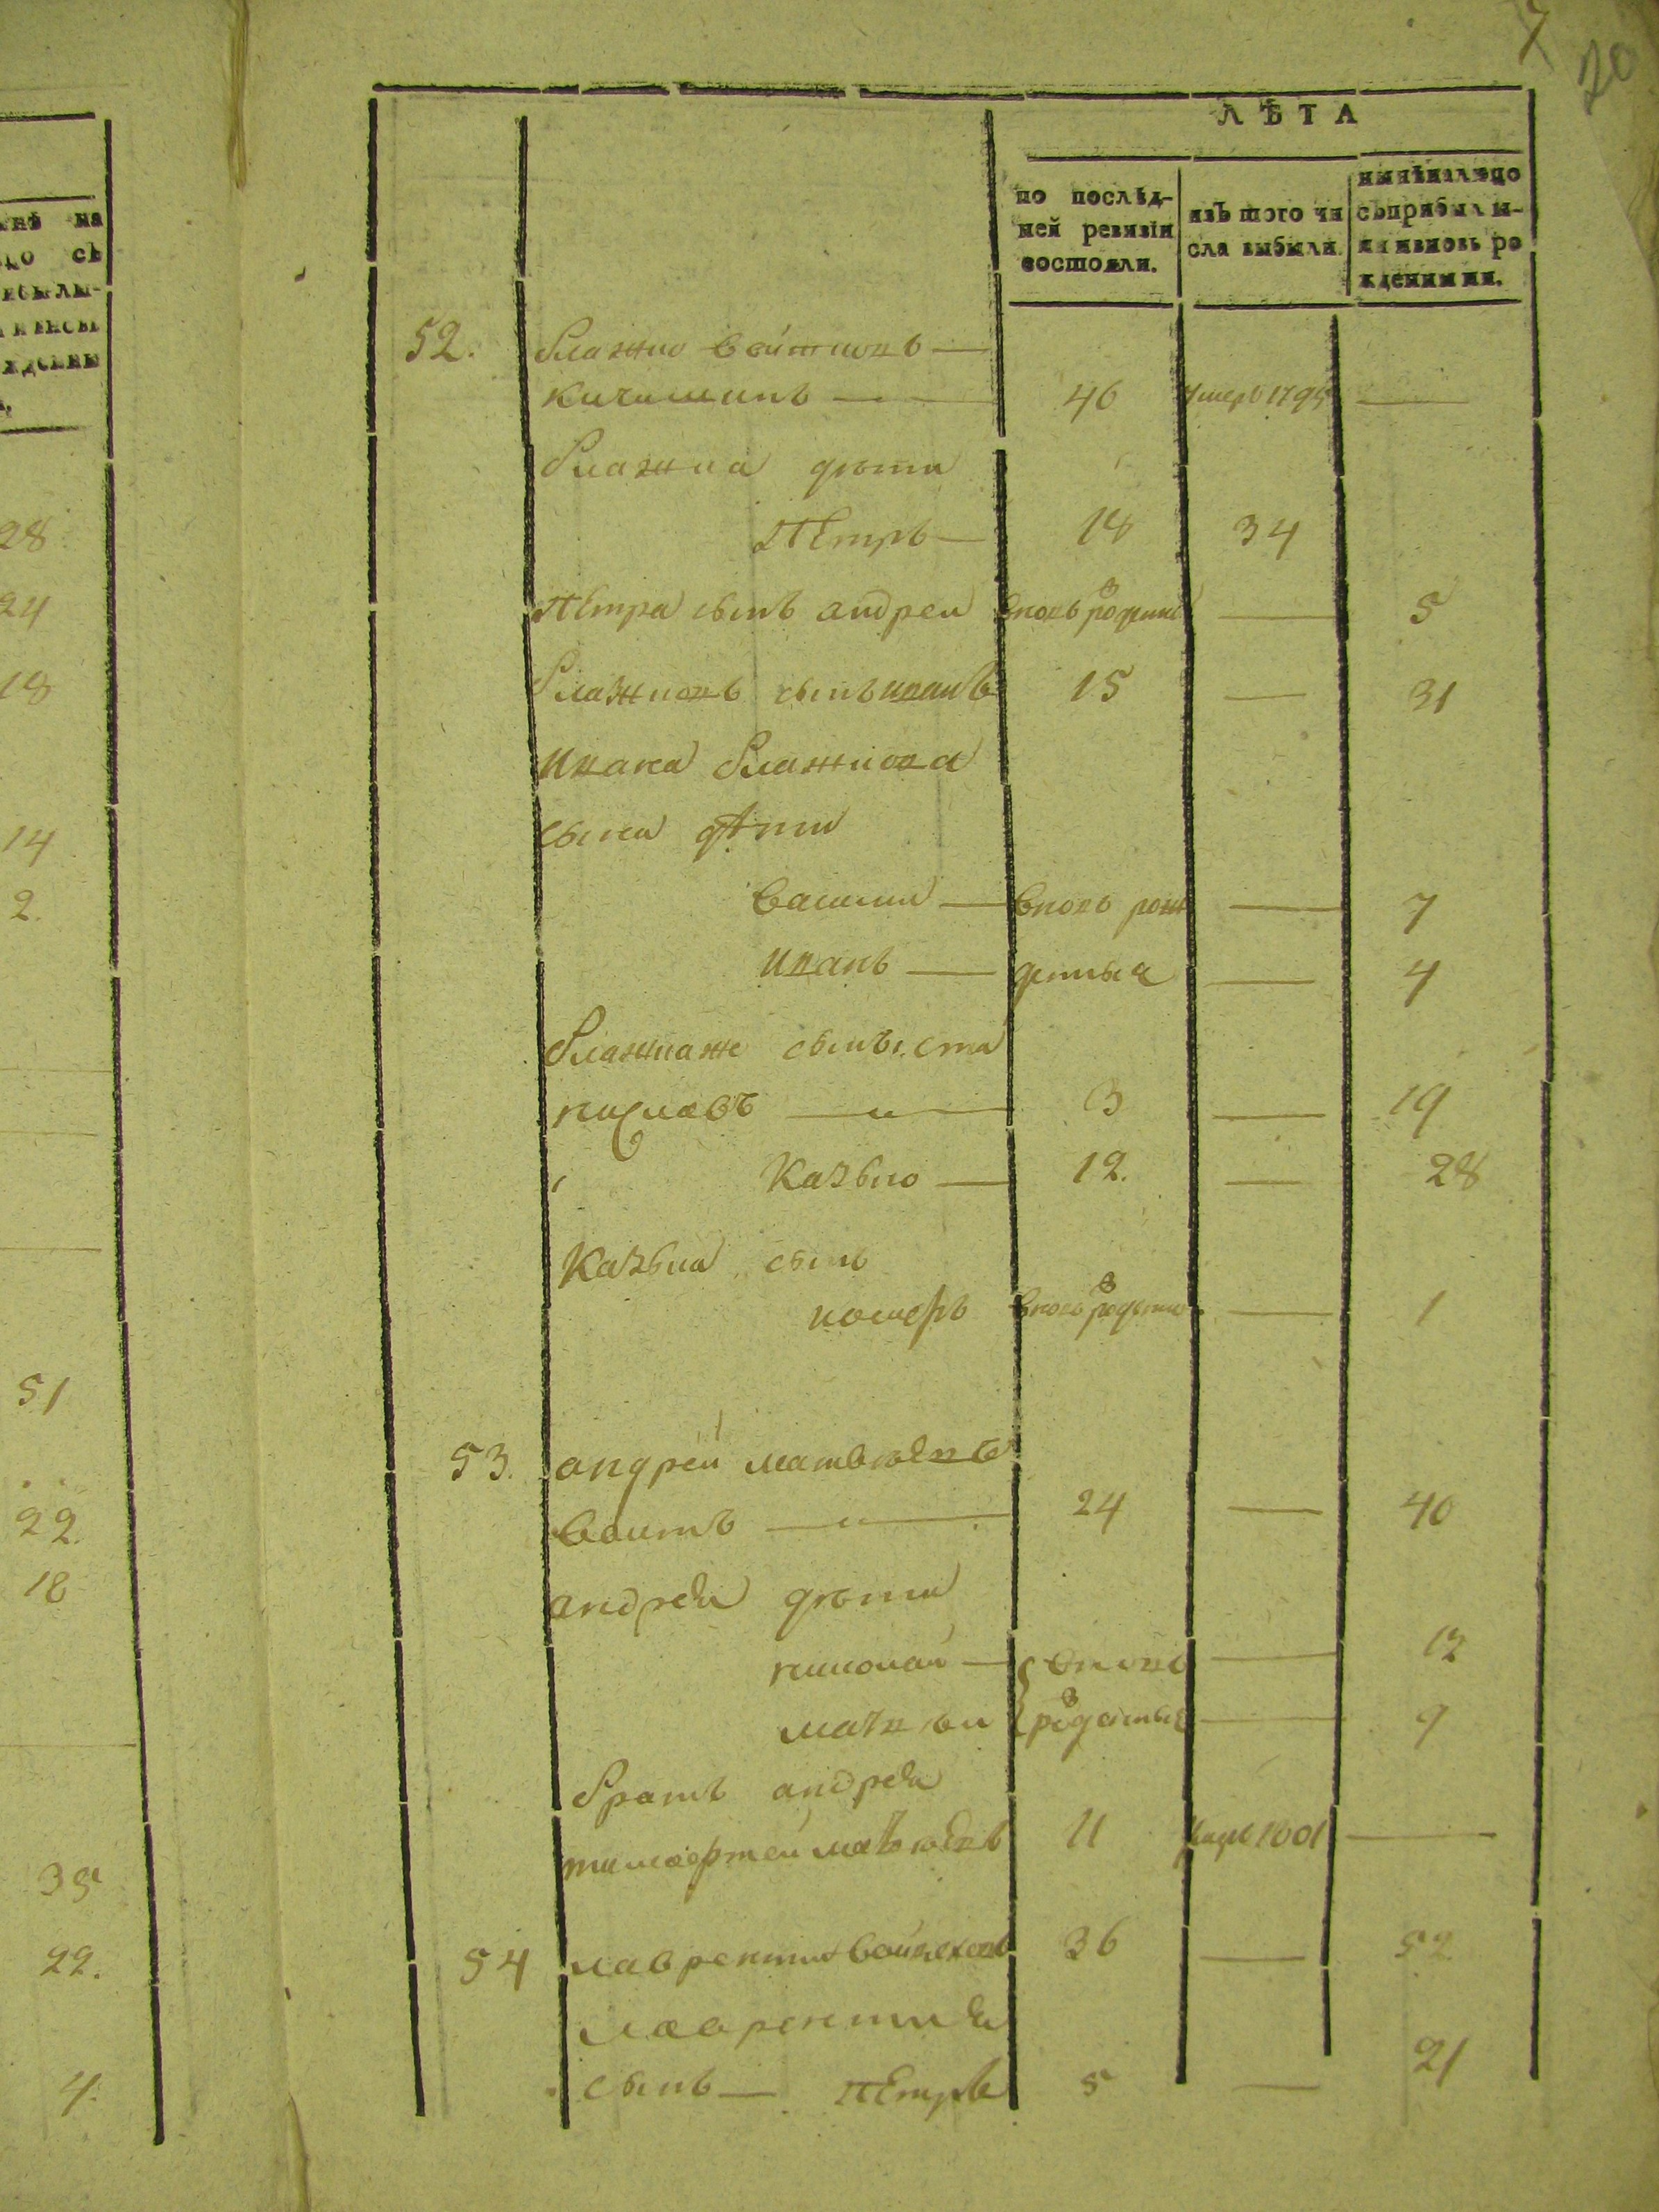 7
20
ЛѢТА
по послѣд-
ней ревизіи
состояли.
изъ того чи
сла выбыли.
нынѣ на лицо
съ прибылы-
ми и вновь ро
жденными.
52. Блажио Войтиовъ —
— 46 Умеръ 1795 —
Блажиа дѣти
Петръ — 18 34
Петра сынъ андреи вновь рожденны — 5
Блажиовъ сынъ иванъ 15 — 31
ивана Блажиова
сына дѣти
василии — вновь рож — 7
иванъ — денныя — 4
Блажиаже сынъ ста
ниславъ — 3 — 19
Казьмо — 12. — 28
Казьма сынъ
вновь рожденны — 1
53. андрей матвѣевъ
воитъ — 24 — 40
андрея дѣти
николай — вновь — 12
матвѣи рожденныя — 9
братъ андрея
тимофтей матвѣевъ 11 умеръ 1801 —
54 лаврентии войцеховъ 36 — 52
лаврентия
сынъ — Петръ 5 — 21
на
съ
28
24
18
14
2.
51
22.
18
35
22.
4.